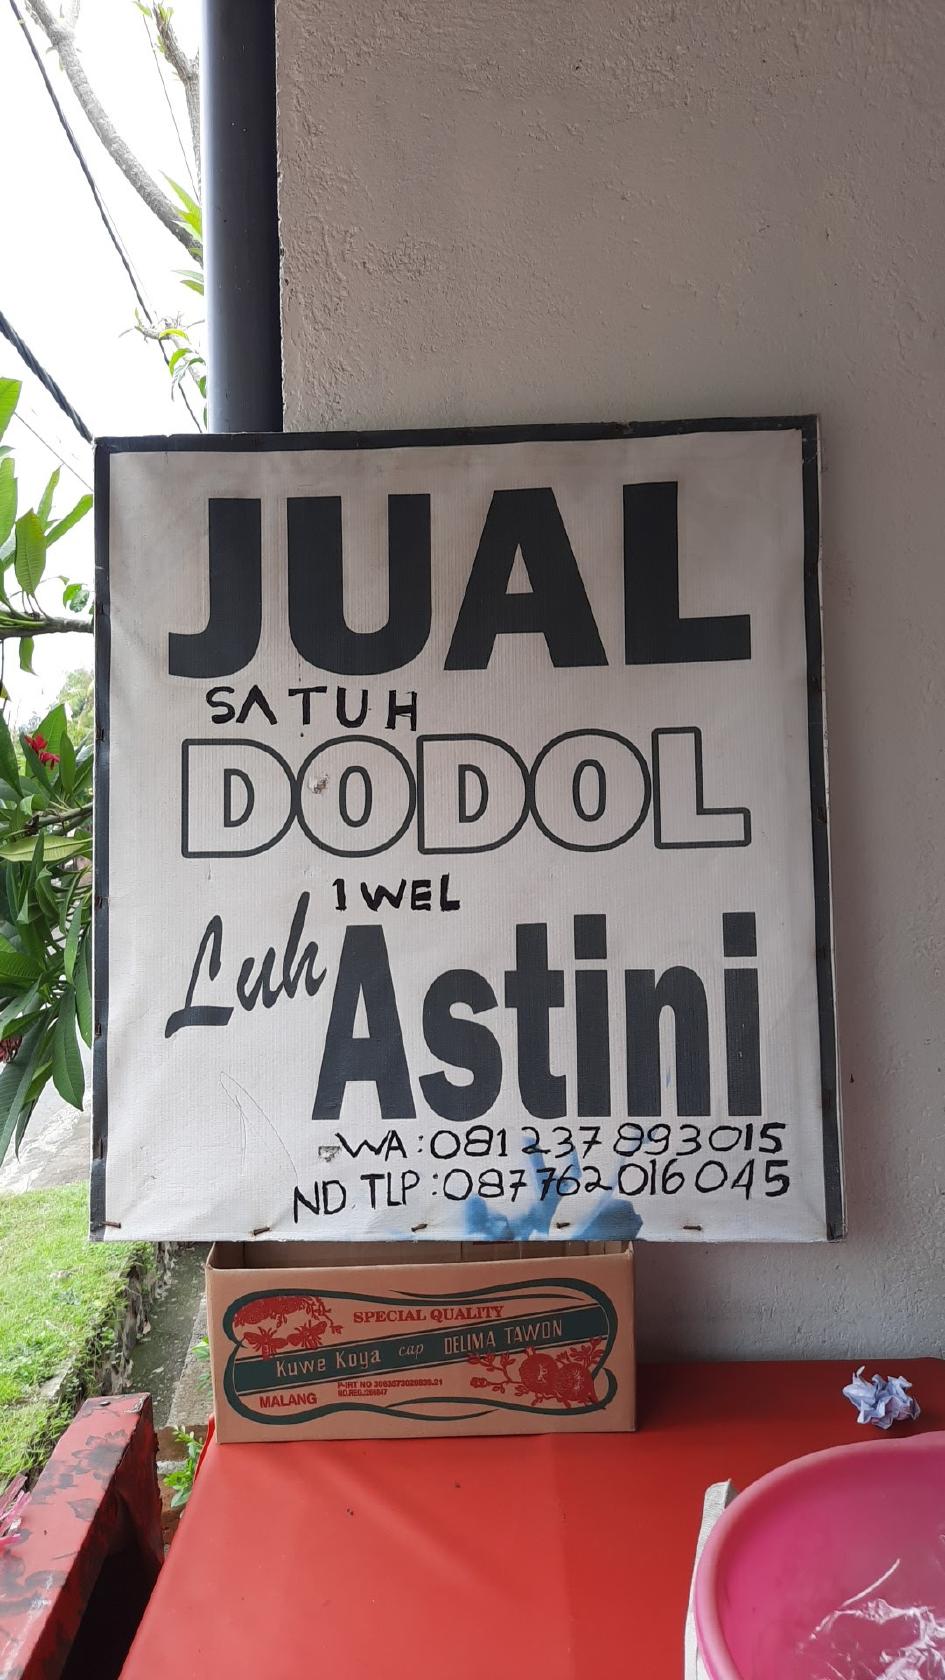 JUAL
SATUH
DODOL
1 WEL
Luh Astini
WA:081 237 893015
ND. TLP:087762016045
SPECIAL QUALITY
Kuwe Koya cap DELIMA TAWON
MALANG